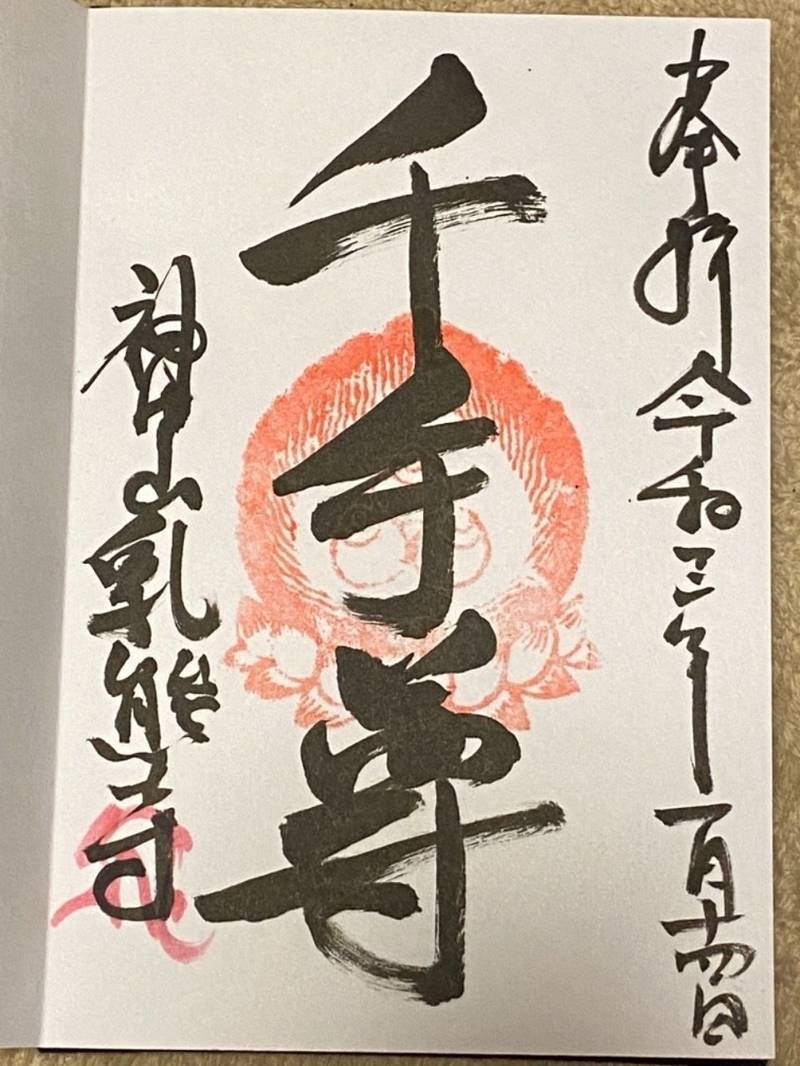 奉拝 令和三年一月十四日
千手尊
神山乳熊寺